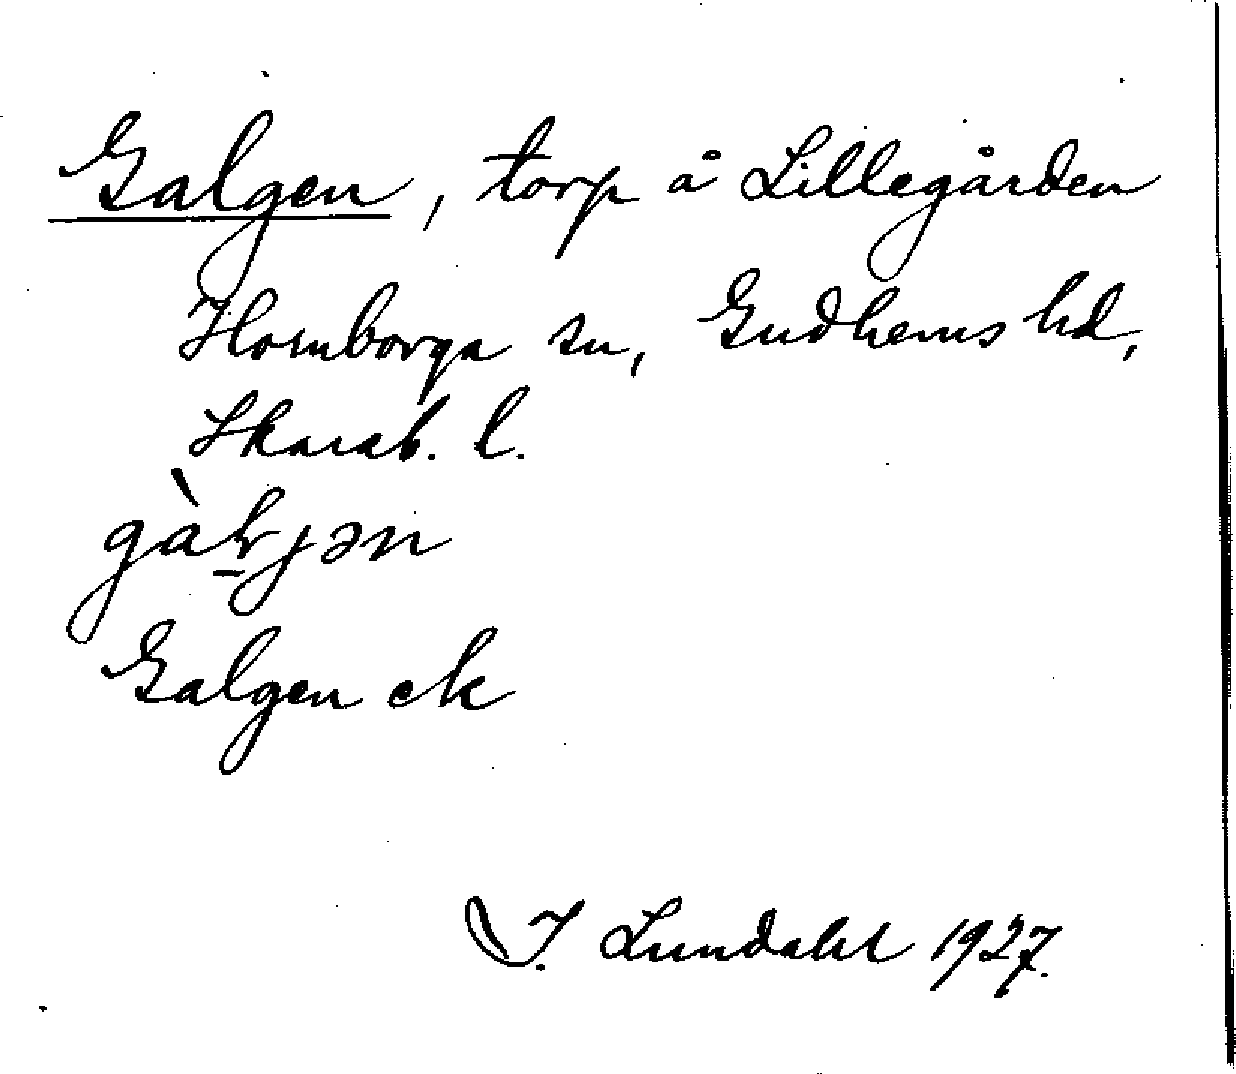 Galgen, torp å Lillegården
Hornborga sn, Gudhems hd,
Skarab. l.
Galgen ek
I. Lundahl 1927.